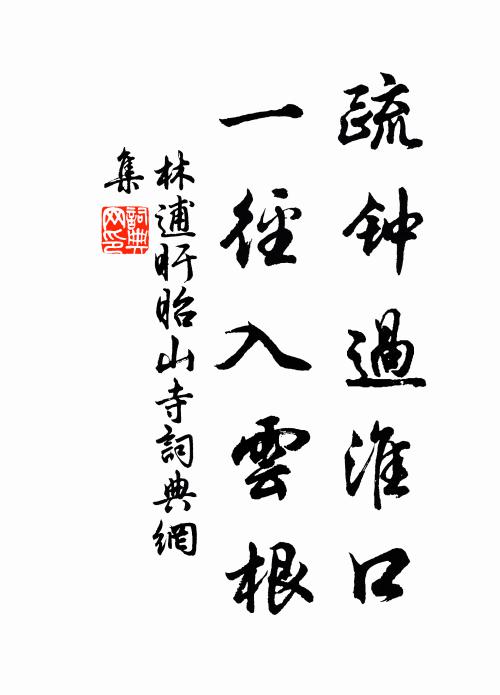 疏钟過淮口
一徑入雲根
林逋盱眙山寺詞典網
集
詞典網印